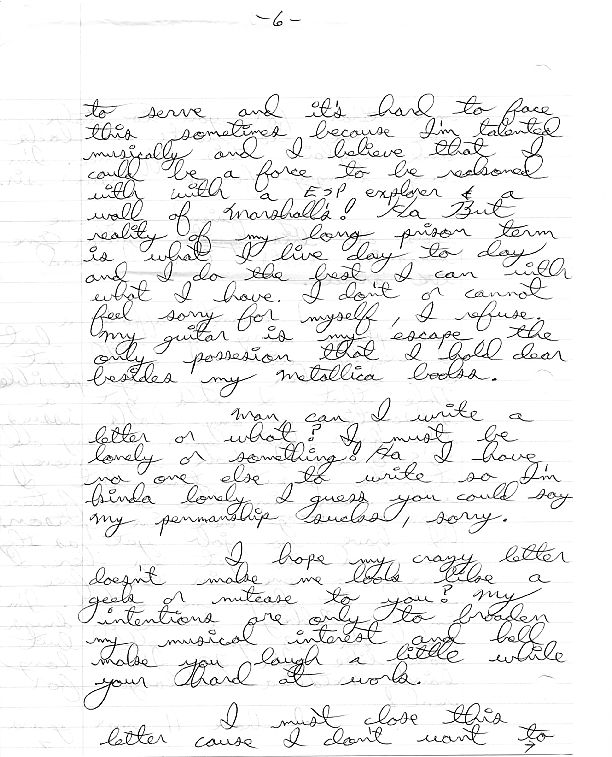 -6-
to serve and it's hard to face
this sometimes because I'm talented
musically and I believe that I
could be a force to be reckoned
with with a ESP explorer & a
wall of Marshall's! Ha But
reality of my long prison term
is what I live day to day
and I do the best I can with
what I have. I don't or cannot
feel sorry for myself, I refuse.
My guitar is my escape the
only possesion that I hold dear
besides my Metallica books.
Man can I write a
letter or what? I must be
lonely or something! Ha I have
no one else to write so I'm
kinda lonely I guess you could say
my penmanship sucks, sorry.
I hope my crazy letter
doesn't make me look like a
geek or nutcase to you? My
intentions are only to broaden
my musical interest and hell
make you laugh a little while
your hard at work.
I must close this
letter cause I don't want to